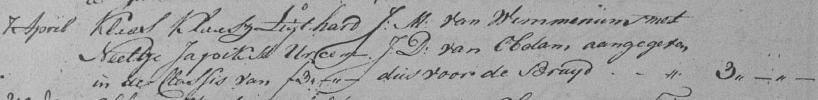 7 April Klaas Klaasz Ligthard J: M: van Wimmenum met
Neeltje Japiks Urcem J: D: van Obdam aangegeven
in de Classis van f 3 „ — „ — dus voor de Bruyd . - „ 3 „ — „ —